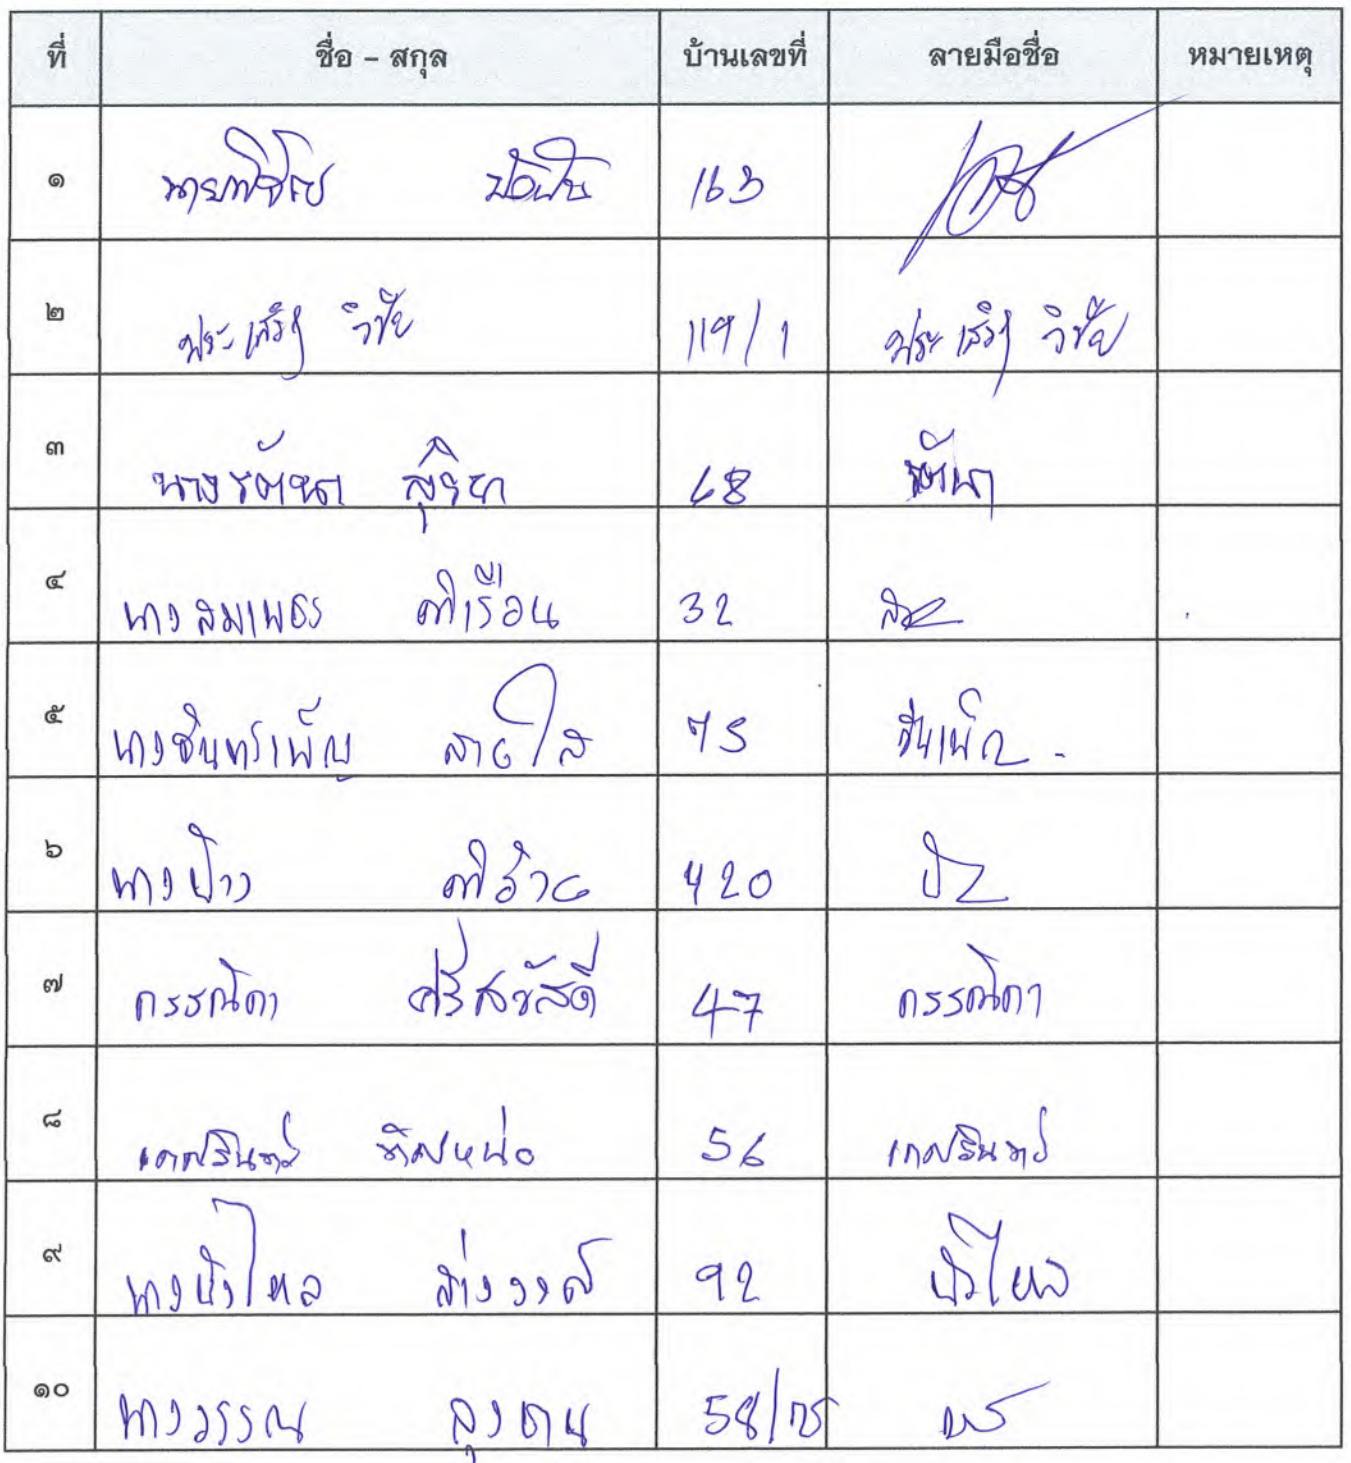 ที่ ชื่อ - สกุล บ้านเลขที่ ลายมือชื่อ หมายเหตุ
๑ 163
๒ ประเสริฐ วิชัย 119/1 ประเสริฐ วิชัย
๓ นางรัตนา สุริยา 68 รัตนา
๔ นางสมเพชร คำเรือน 32
๕ นางจันทร์เพ็ญ สายใส 75 จันเพ็ญ
๖ นางป้าง คำอ้าย 420
๗ กรรณิกา ศรีสวัสดิ์ 47 กรรณิกา
๘ เกศรินทร์ ทิศหน่อ 56 เกศรินทร์
๙ นางบัวไหล สางวงศ์ 92 บัวไหล
๑๐ นางวรรณ ลุงตาน 58/